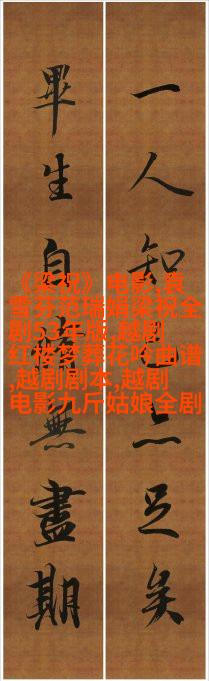 一人知足矣
畢生自無盡期
《梁祝》电影,袁
雪芬范瑞娟梁祝全
剧53年版,越剧
红楼梦葬花吟曲谱
,越剧剧本,越剧
电影九斤姑娘全剧